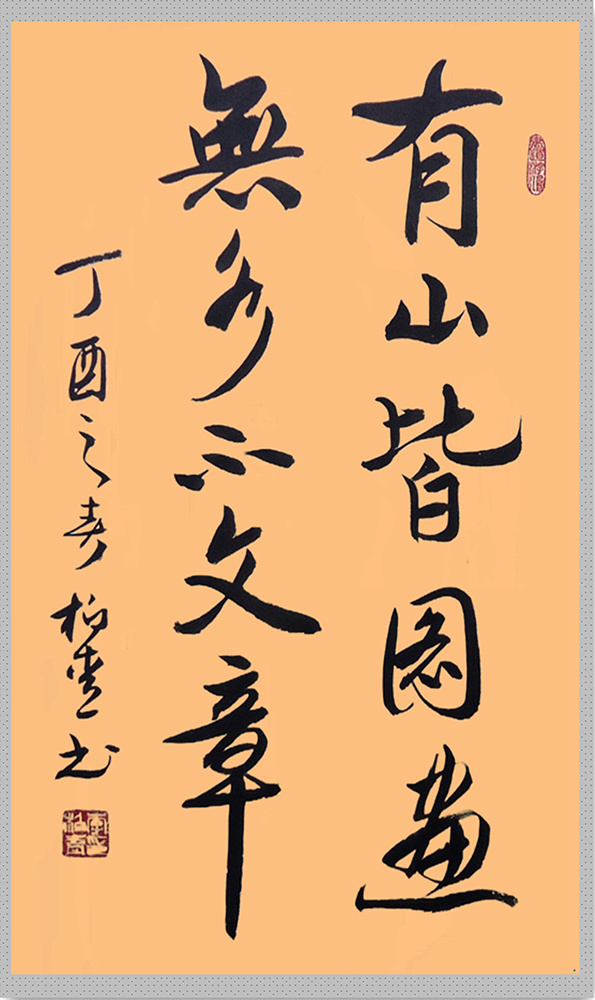 有山皆圖畫
無水不文章
丁酉之春 柏 书